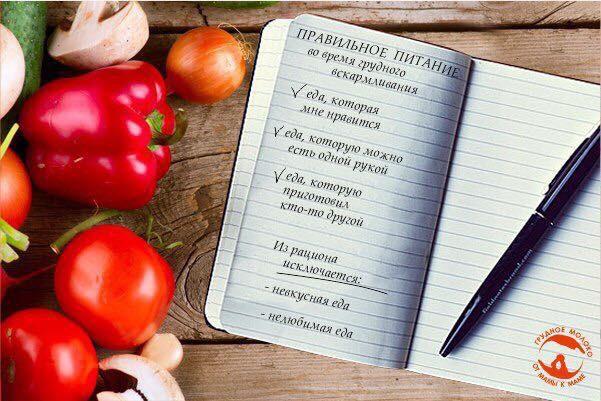 ПРАВИЛЬНОЕ ПИТАНИЕ
во время грудного
вскармливания
√ еда, которая
мне нравится
√ еда, которую можно
есть одной рукой
√ еда, которую
приготовил
кто-то другой
Из рациона
исключается:
- невкусная еда
- нелюбимая еда
ГРУДНОЕ МОЛОКО
ОТ МАМЫ К МАМЕ